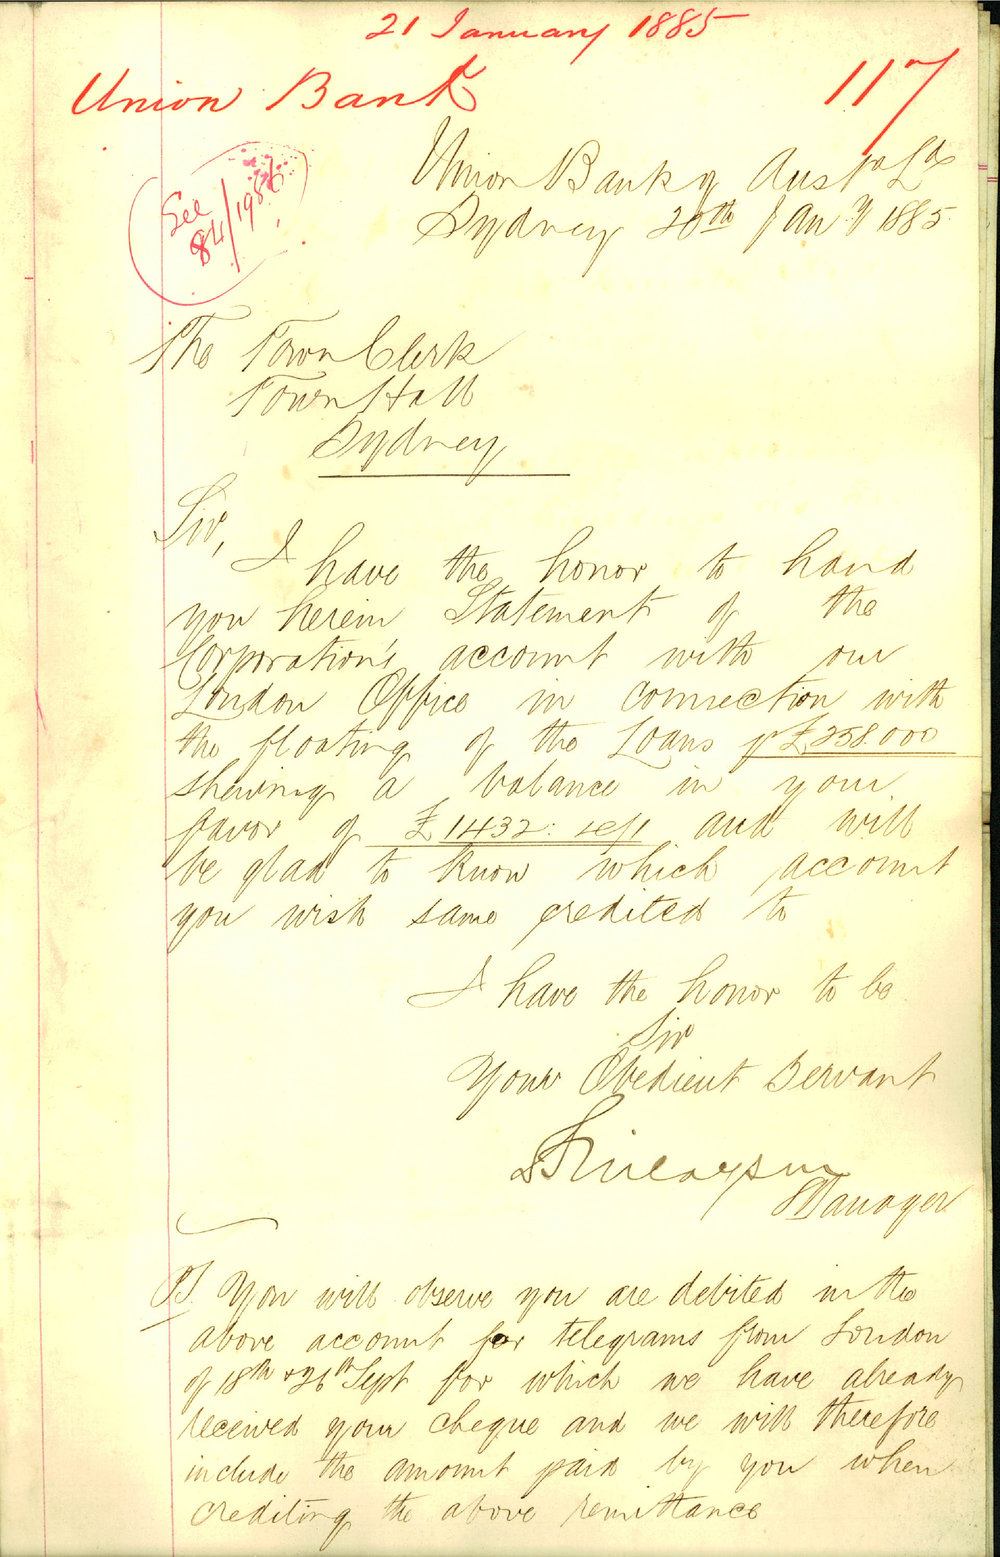 21 January 1885
Union Bank
117
See
84/1986
Union Bank of Aust<sup>ra</sup> L<sup>d</sup>
Sydney 20th Jany 1885
The Town Clerk
Town Hall
Sydney
Sir,
I have the honor to hand
you herein Statement of the
Corporation's account with our
London Office in connection with
the floating of the Loans pr £258.000
shewing a balance in your
favor of £1432: and will
be glad to know which account
you wish same credited to
I have the honor to be
Sir
Your Obedient Servant
Finlayson
Manager
PS. You will observe you are debited in the
above account for telegrams from London
of 18th & 26th Sept for which we have already
received your cheque and we will therefore
include the amount paid by you when
crediting the above remittance